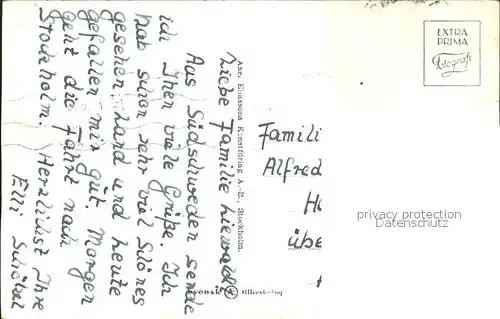 Liebe Familie Liewald
Aus Südschweden sende
ich Ihnen viele Grüße. Ich
hab schon sehr viel Schönes
gesehen. Land und Leute
gefallen mir gut. Morgen
geht die Fahrt nach
Stockholm. Herzlichst Ihre
Elli
Axel Eliassons Konstförlag A.-B., Stockholm.
EXTRA
PRIMA
Fotografi
Famili
Alfred
H
übe
privacy protection
Datenschutz